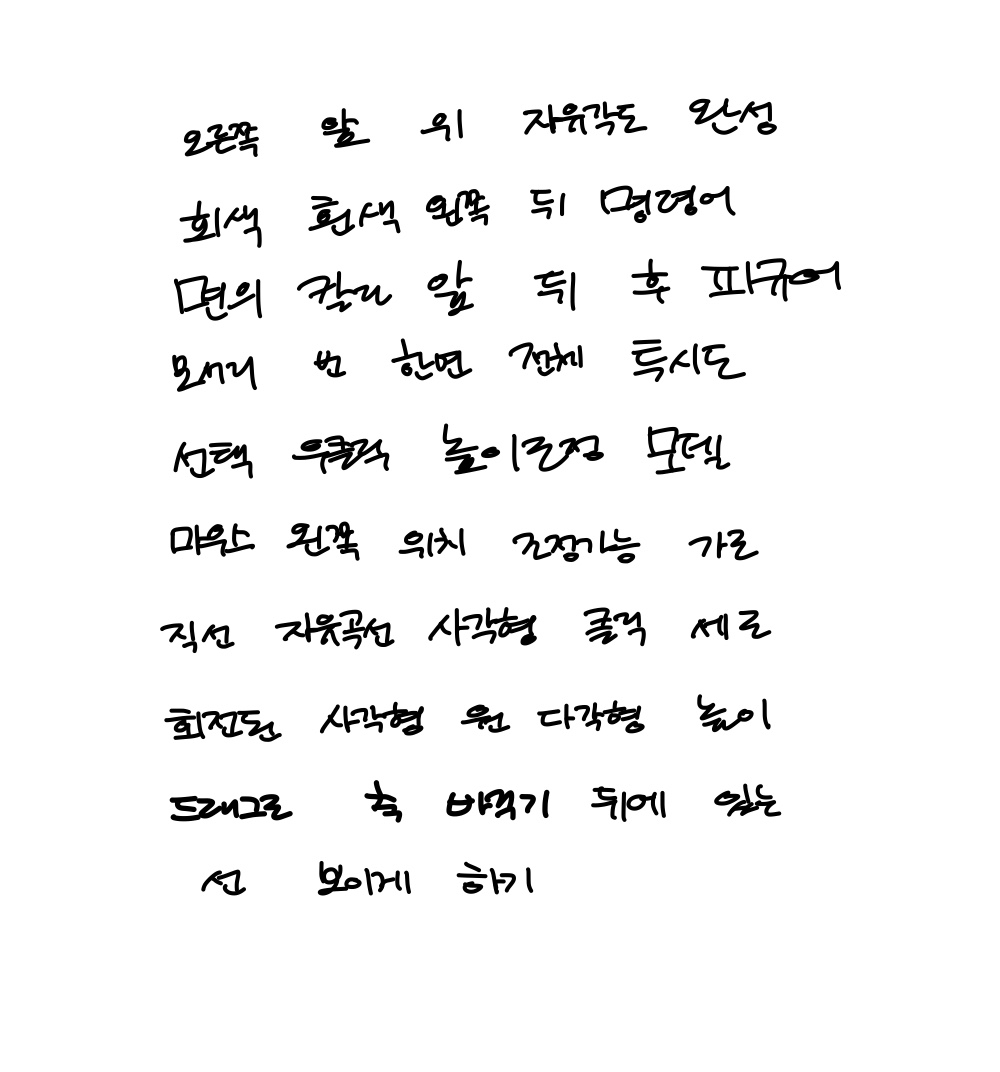 오른쪽 앞 위 자유각도 완성
회색 흰색 왼쪽 뒤 명령어
면의 칼라 앞 뒤 후 피규어
모서리 번 한면 전체 득시도
선택 우클릭 높이조정 모델
마우스 왼쪽 위치 조정가능 가로
직선 자유곡선 사각형 클릭 세로
회전된 사각형 원 다각형 높이
드래그로 축 바꾸기 뒤에 있는
선 보이게 하기